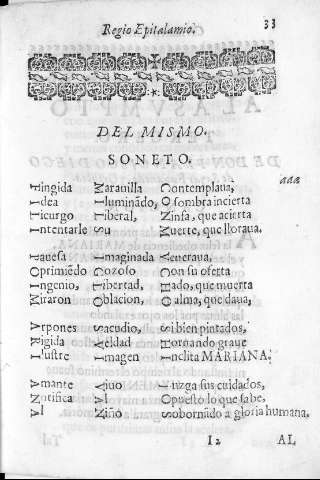 Regio Epitalamio. 33
DEL MISMO.
SONETO.
Fingida Marauilla Contemplaua,
Idea Iluminãdo, O sombra incierta
Licurgo Liberal, Ninfa, que acierta
Intentarle Su Muerte, que lloraua.
aaa
Pauesa Imaginada Veneraua,
Oprimiẽdo Gozoso Con su oferta
Ingenio, Libertad, Hado, que muerta
Miraron Oblacion, O alma, que daua,
Arpones Sacudio, Si bien pintados,
Rigida Veldad Hornando graue
Ilustre Imagen Inclita MARIANA:
Amante Viuo Iuzga sus cuidados,
Notifica Al Opuesto lo que sabe,
Al Niño Sobornãdo a gloria humana.
I2 AL